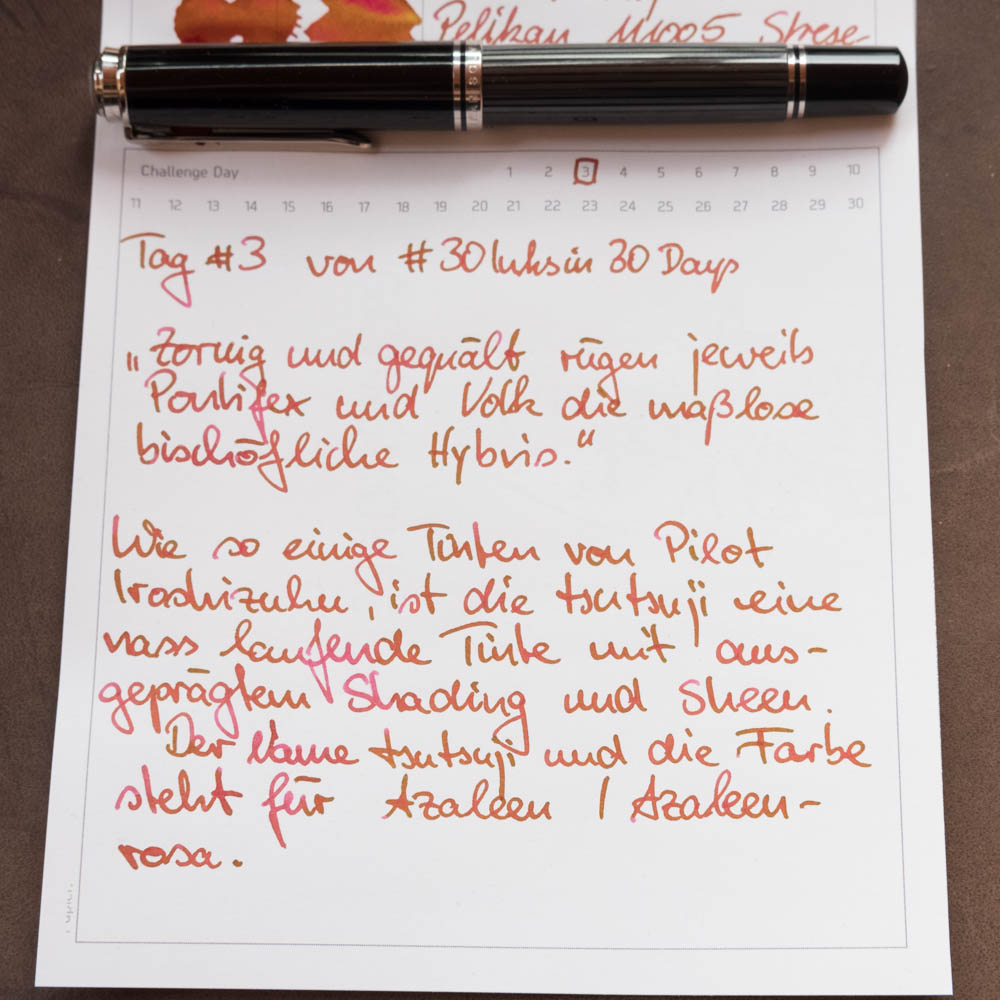 Pelikan M1005 Strese-
Challenge Day 1 2 3 4 5 6 7 8 9 10
11 12 13 14 15 16 17 18 19 20 21 22 23 24 25 26 27 28 29 30
Tag #3 von #30 Inks in 30 Days
„Zornig und gequält rügen jeweils
Pontifex und Volk die maßlose
bischöfliche Hybris.“
Wie so einige Tinten von Pilot
Iroshizuku, ist die tsutsuji eine
nass laufende Tinte mit aus-
geprägtem Shading und Sheen.
Der Name tsutsuji und die Farbe
steht für Azaleen / Azaleen-
rosa.